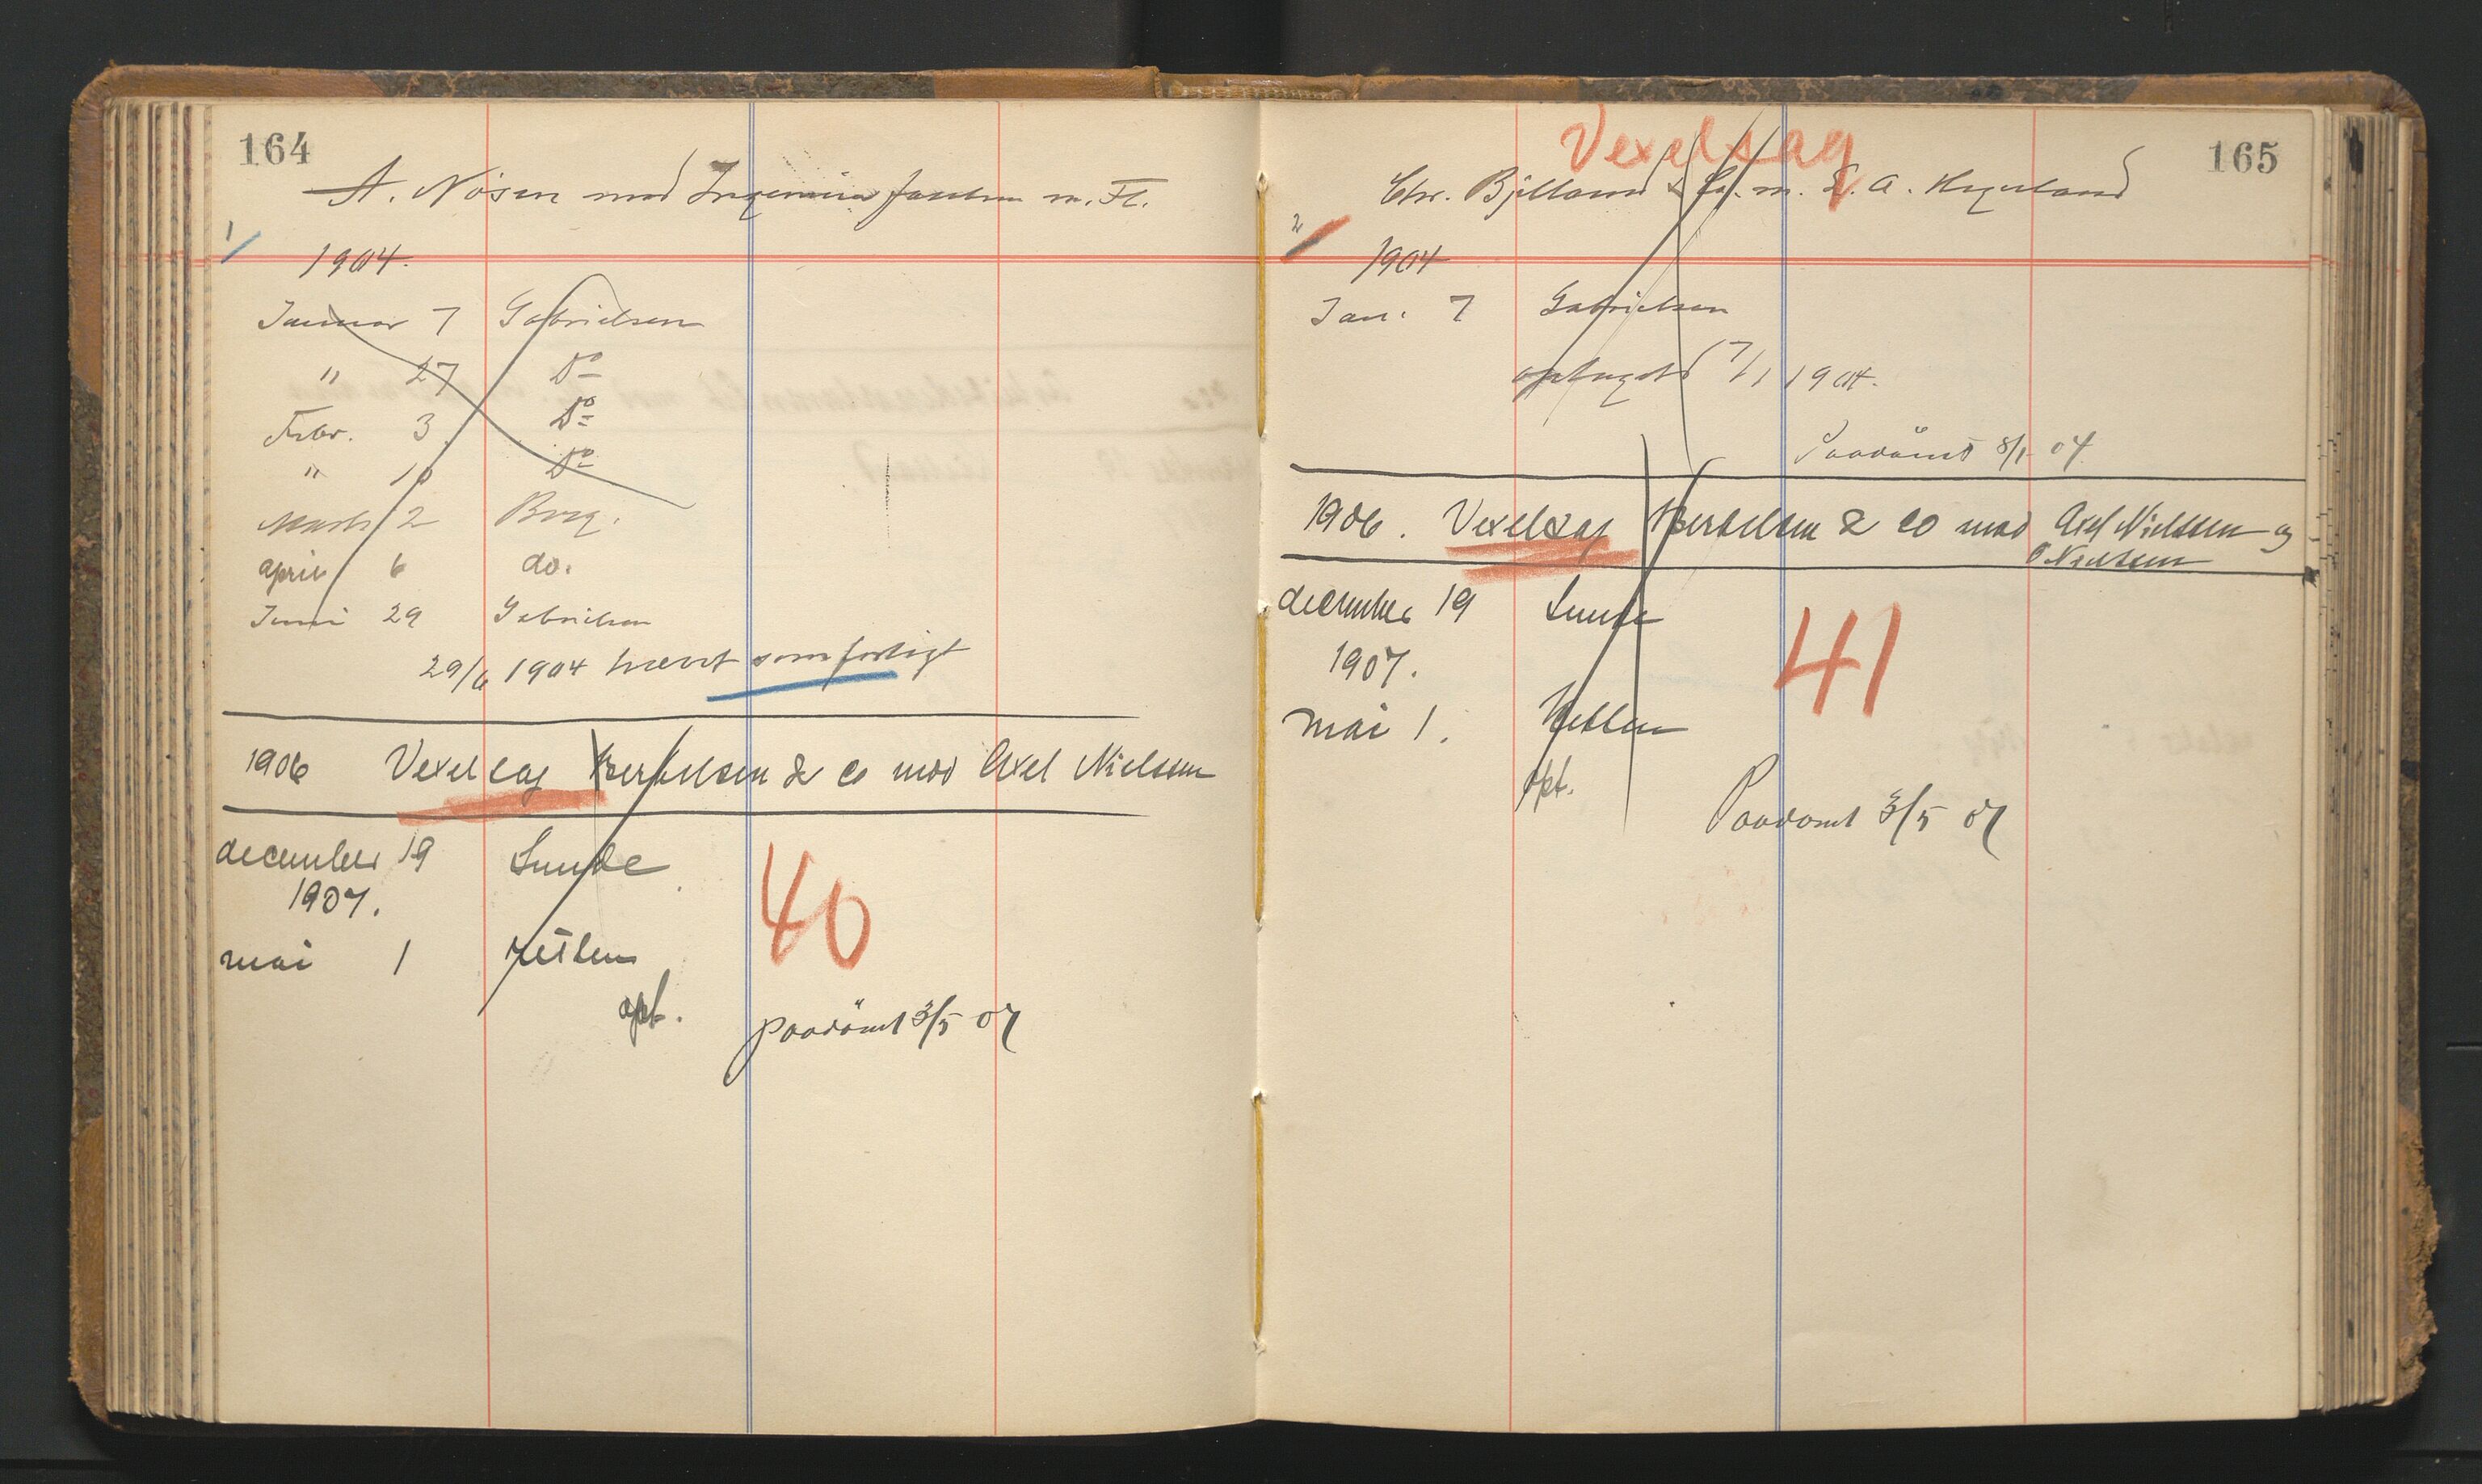 164
A. Nösen mod Ingeniør Jacobsen m. Fl.
1
1904.
Januar 7 Gabrielsen
" 27 Do
Febr. 3. Do
" 10 Do
Marts 2 Borg.
april 6 do.
Juni 29 Gabrielsen
29/6 1904 hævet som forligt
1906 Vexelsag Bertelsen & Co mod Axel Nielssen
december 19 Sunde
1907.
mai 1 Ketlen
opt.
40
paadömt 3/5 07
165
Vexelsag
Chr. Bjelland & Co. m. L. A. Hegeland
2
1904
Jan. 7 Gabrielsen
optaget 7/1 1904.
Paadömt 8/1 04
1906. Vexelsag Bertelsen & Co mod Axel Nielssen og
O Nielssen
december 19 Sunde
41
1907.
mai 1. Ketlen
opt.
Paadömt 3/5 07